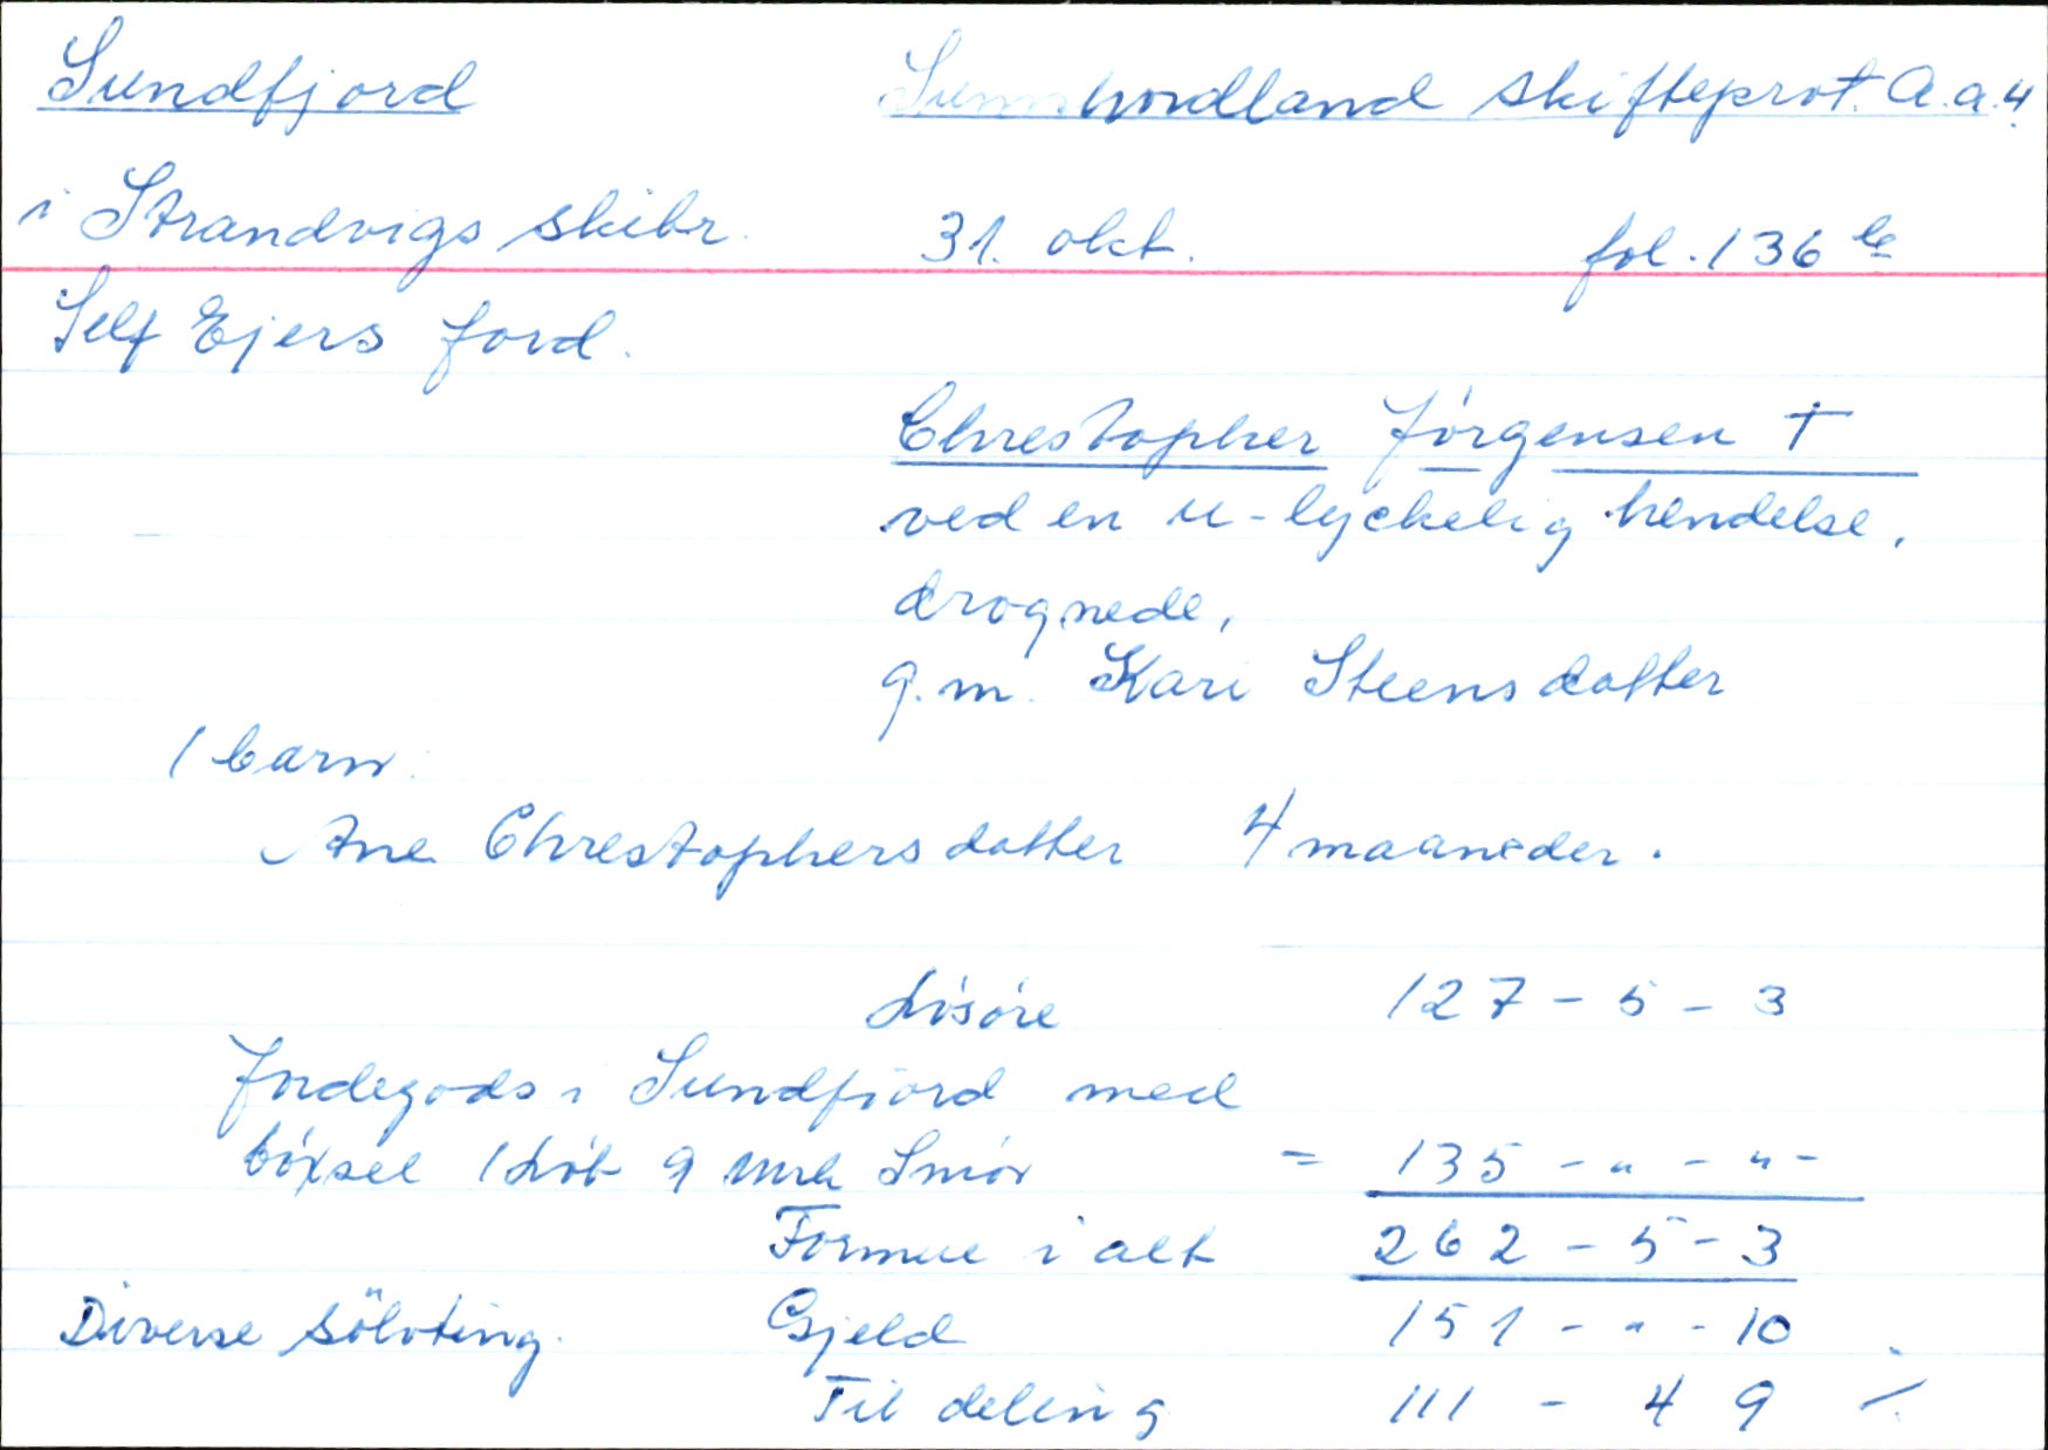 Sundfjord Sunnhordland skifteprot. A.a.4.
i Strandvigs skibr. 31. okt. fol. 136 b
Self Ejers Jord.
Chrestopher Jörgensen †
ved en u-lyckelig hendelse,
drognede,
g.m. Kari Steensdatter
1 barn:
Ane Chrestophersdatter 4 maaneder.
Lösöre 127 - 5 - 3
Jordegods i Sundfjord med
böxsel 1 Löb 9 mrk Smör = 135 - " - " -
Formue i alt 262 - 5 - 3
Diverse sölvting. Gjeld 151 - " - 10
Til deling 111 - 4 9 /.